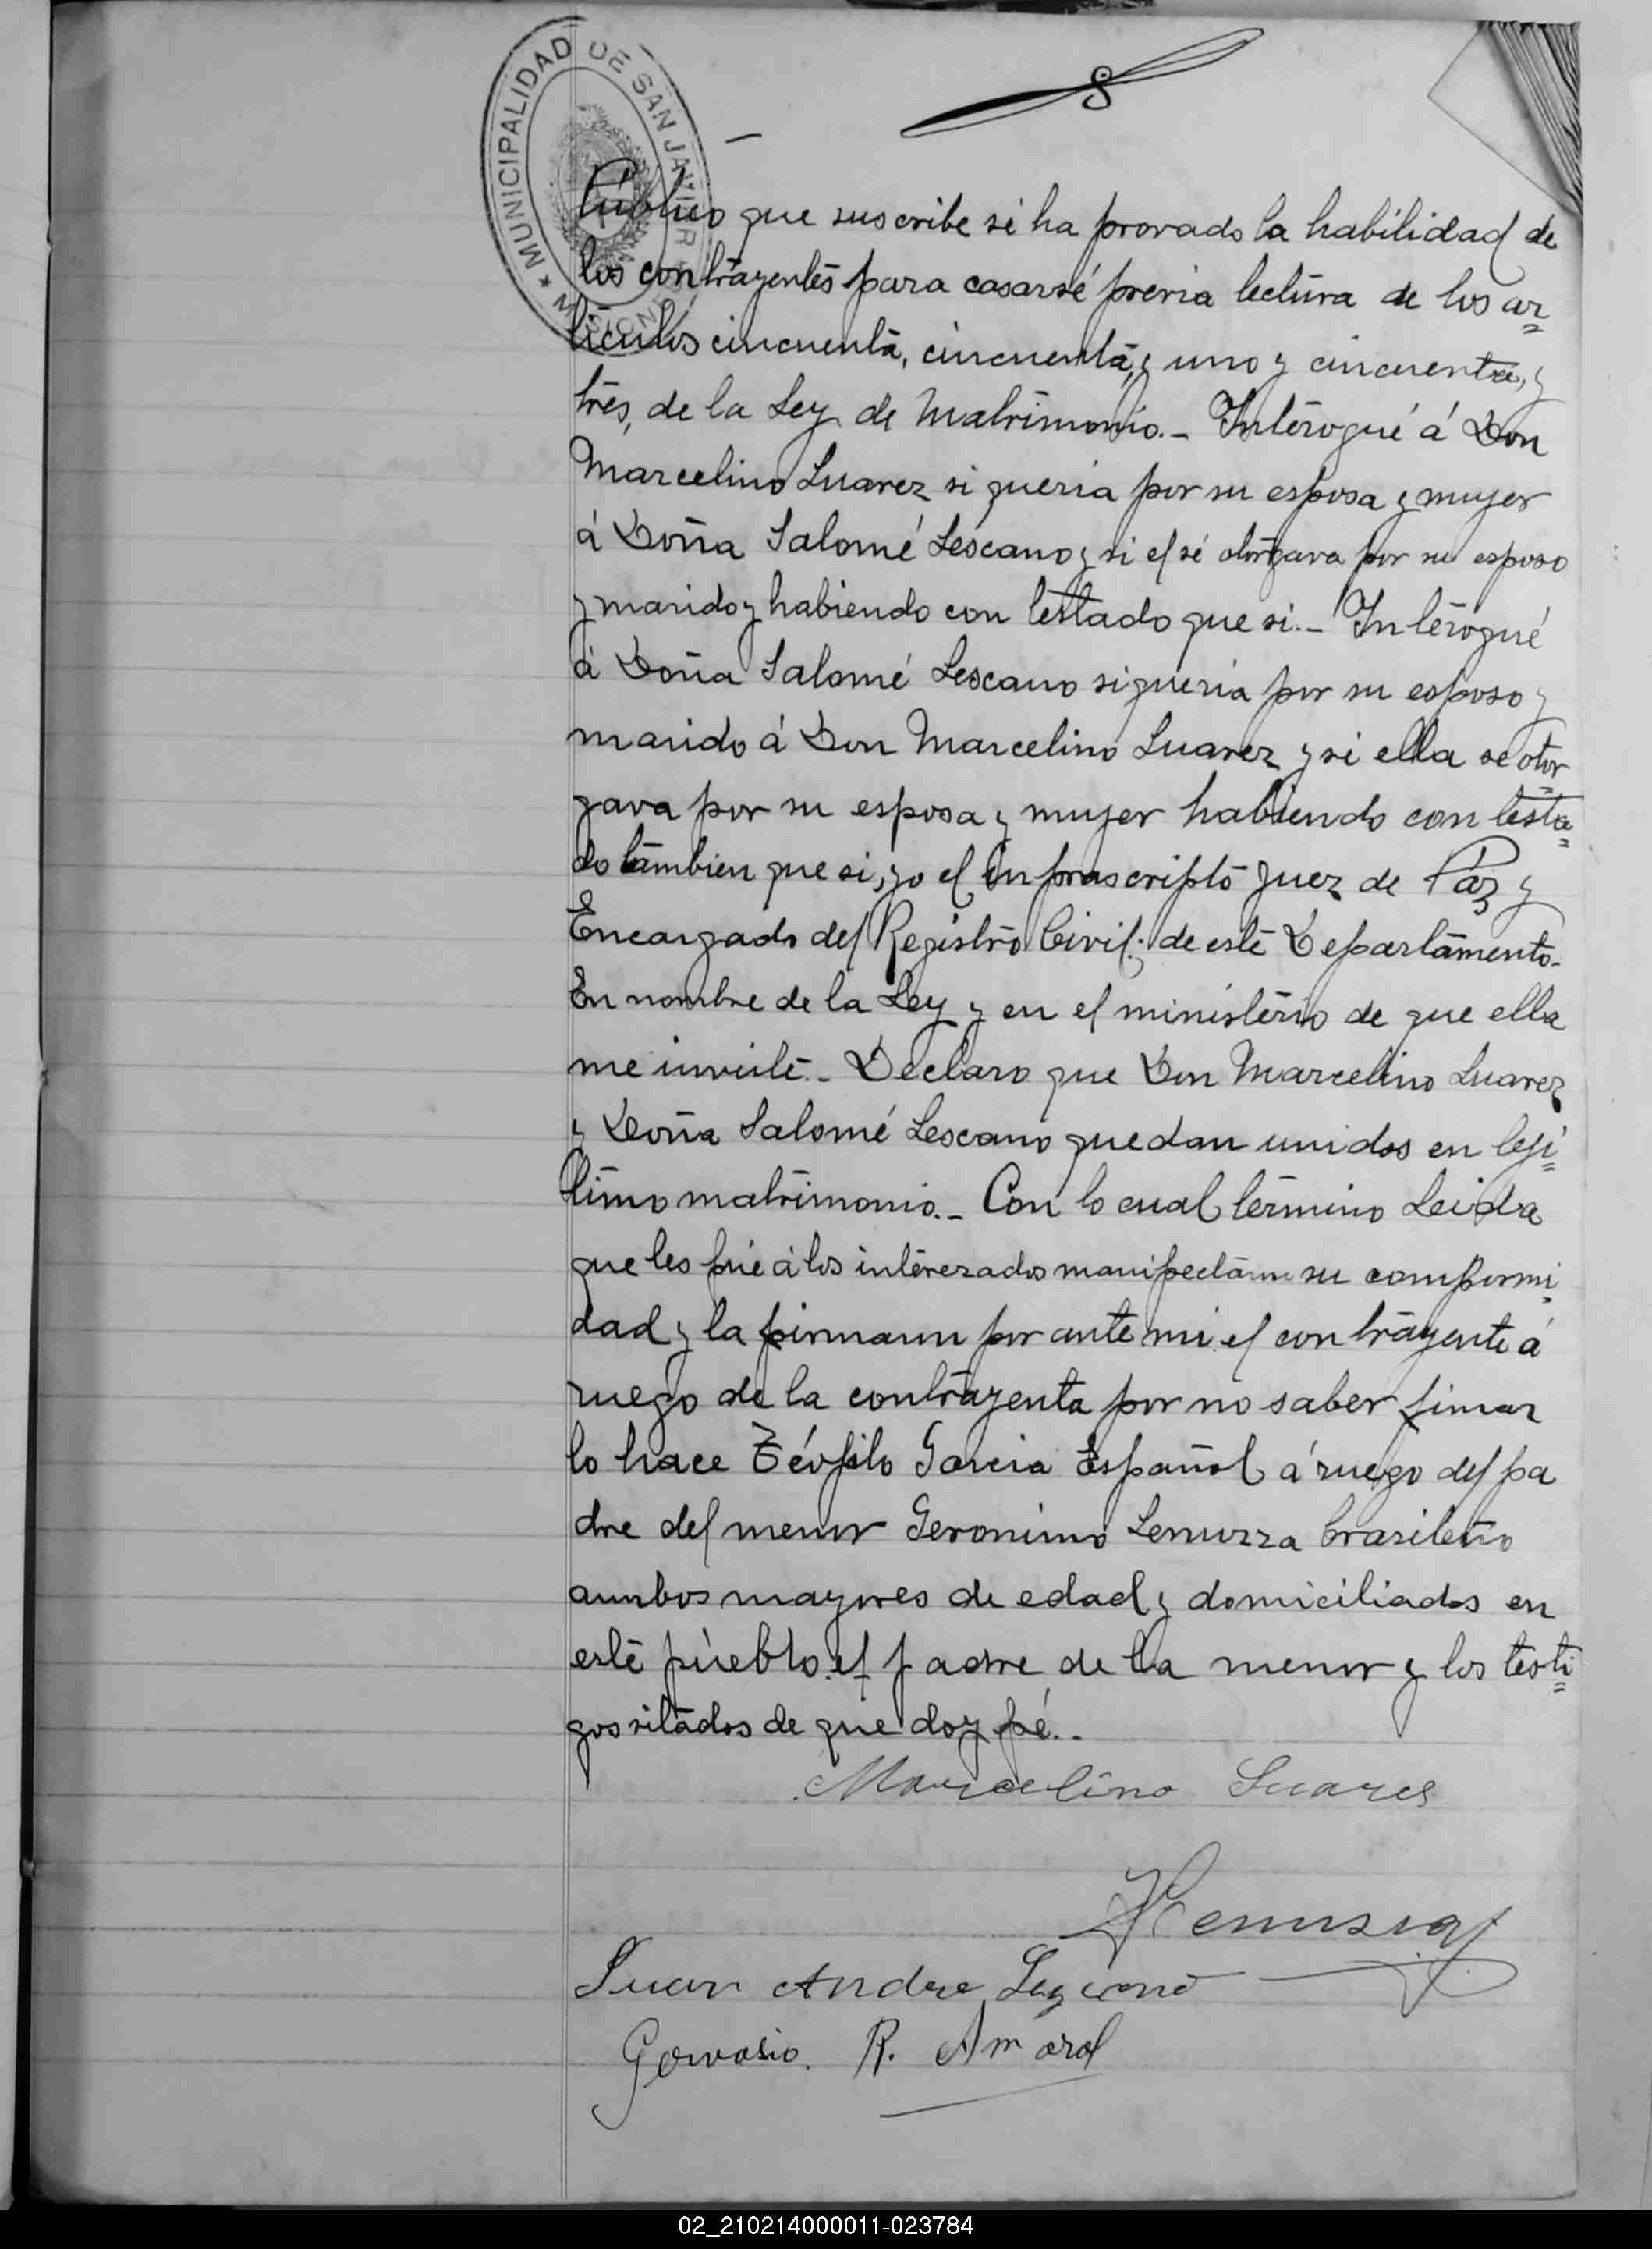 MUNICIPALIDAD DE SAN JAVIER MISIONES
8
Público que suscribe sé ha provado la habilidad de
los contrayentes para casarsé previa lectura de los ar=
ticulos cincuenta, cincuenta, y uno y cincuenta, y
tres, de la Ley de Matrimonio.- Interogué á Don
Marcelino Suarez si queria por su esposa y mujer
á Doña Salomé Lescano y si el sé otorgava por su esposo
y marido y habiendo con testado que si.- Interogué
á Doña Salomé Lescano si queria por su esposo y
marido á Don Marcelino Suarez y si ella se otor=
gava por su esposa y mujer habiendo con testa=
do tambien que si, yo el infrascripto Juez de Páz y
Encargado del Registro Civil. de este Departamento.-
En nombre de la Ley y en el ministerio de que ella
me inviste.- Declaro que Don Marcelino Suarez
y Doña Salomé Lescano quedan unidos en leji=
timo matrimonio.- Con lo cual termino Leida
que les fué á los interezados manifectaron su comformi=
dad y la firmaron por ante mi el contrayente á
ruego de la contrayenta por no saber fimar
lo hace Teófilo Garcia Español á ruego del pa
dre del menor Geronimo Lemuzza brasileño
ambos mayores de edad y domiciliados en
este pueblo. el padre de la menor y los testi=
gos sitados de que doy fé.-
Marcelino Suares
Juan Andre Lezcano
Gervasio R. Amaral
02_210214000011-023784